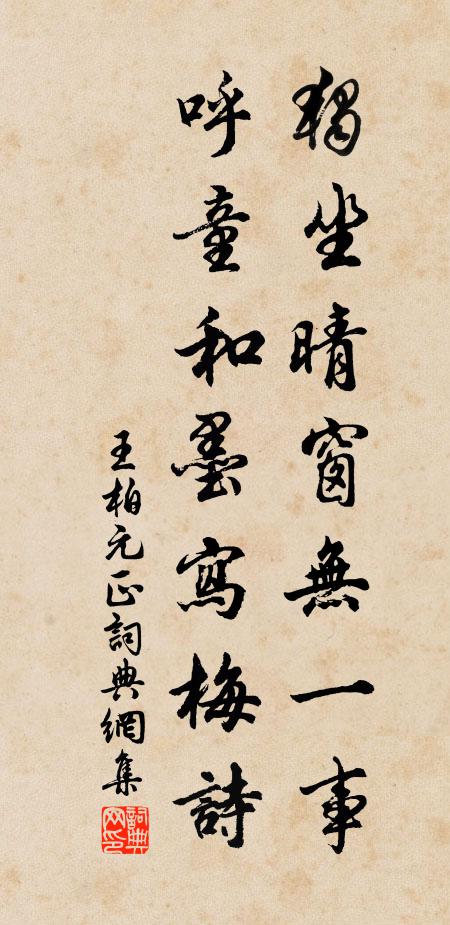 獨坐晴窗無一事
呼童和墨寫梅詩
王柏元正詞典網集
詞典網印